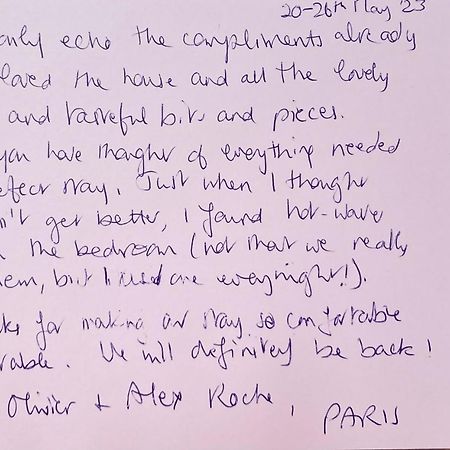 20-26th May '23
only echo the compliments already
loved the house and all the lovely
and tasteful bits and pieces.
you have thought of everything needed
erfect stay. Just when I thought
n't get better, I found hot-wave
the bedroom (not that we really
hem, but I used one everynight!).
ks for making our stay so comfortable
rable. We will definitely be back!
Olivier + Alex Roche, PARIS